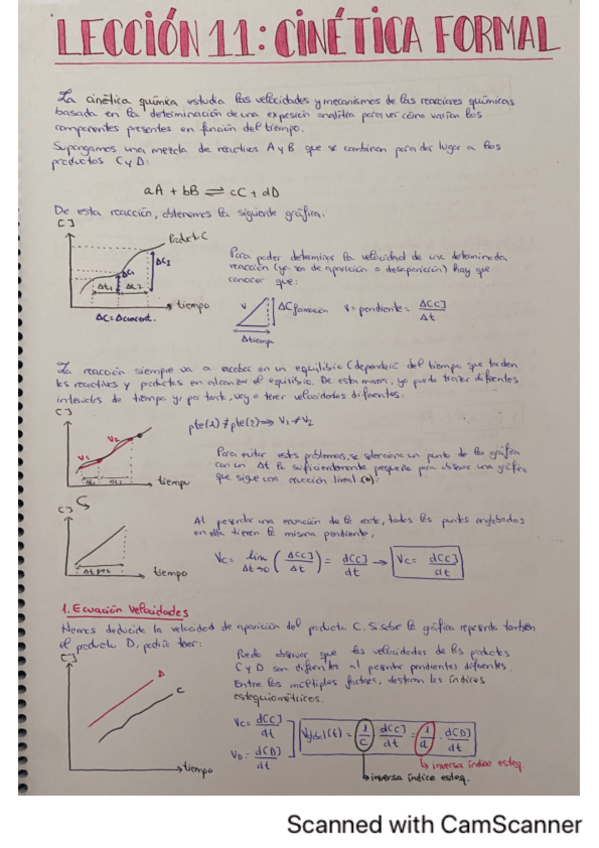 LECCIÓN 11: CINÉTICA FORMAL
La cinética química estudia las velocidades y mecanismos de las reacciones químicas
basada en la determinación de una exposición analítica para ver cómo varían los
componentes presentes en función del tiempo.
Supongamos una mezcla de reactivos A y B que se combinan para dar lugar a los
productos C y D:
aA + bB ⇌ cC + dD
De esta reacción, obtenemos la siguiente gráfica.
[ ]
Product. C
ΔC1
ΔC2
Δt1
Δt2
tiempo
ΔC = Δconcent.
Para poder determinar la velocidad de una determinada
reacción (ya sea de aparición o desaparición) hay que
conocer que:
V
ΔC formación
V = pendiente = Δ[C] / Δt
Δtiempo
La reacción siempre va a acabar en un equilibrio (dependerá del tiempo que tarden
los reactivos y productos en alcanzar el equilibrio. De esta manera, yo puedo trazar diferentes
intervalos de tiempo y, por tanto, voy a tener velocidades diferentes.
[ ]
V1
V2
tiempo
pte(1) ≠ pte(2) ⇒ V1 ≠ V2
Para evitar estos problemas, se selecciona un punto de la gráfica
con un Δt lo suficientemente pequeño para obtener una gráfica
que sigue una ecuación lineal
[ ]
Δt peq
tiempo
Al presentar una ecuación de la recta, todos los puntos englobados
en ella tienen la misma pendiente,
Vc = lim Δt→0 (Δ[C] / Δt) = d[C] / dt → Vc = d[C] / dt
1. Ecuación Velocidades
Hemos deducido la velocidad de aparición del producto C. Si sobre la gráfica represento también
el producto D, podría tener:
[ ]
D
C
tiempo
Puedo observar que las velocidades de los productos
C y D son diferentes al presentar pendientes diferentes.
Entre los múltiples factores, destacan los índices
estequiométricos.
Vc = d[C] / dt
VD = d[D] / dt
(t) = 1/C d[C] / dt = 1/d · d[D] / dt
inversa índice esteq.
inversa índice esteq.
Scanned with CamScanner